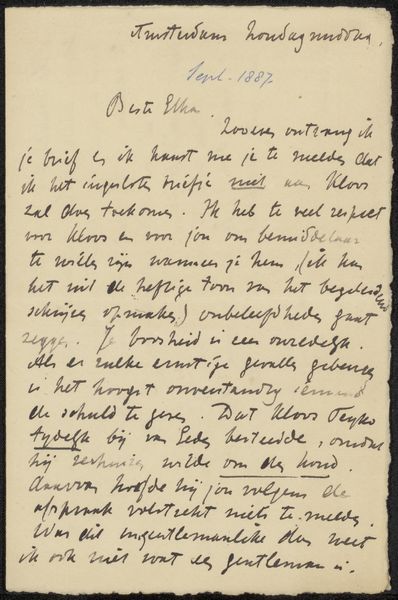 Amsterdam Zondagmiddag.
Sept. 1887
Beste Elha.
Zooeven ontvang ik
je brief en ik haast me je te melden dat
ik het ingesloten briefje niet aan Kloos
zal doen toekomen. Ik heb te veel respect
voor Kloos en voor jou om bemiddelaar
te willen zijn wanneer je hem, (ik kan
het uit de heftige toon van het begeleidend
schrijven opmaken,) onbeleefdheden gaat
zeggen. Je boosheid is zeer onredelijk.
Als er zulke ernstige gevallen gebeuren
is het hoogst onverstandig iemand
de schuld te geven. Dat Kloos
tydelijk bij van Eeden besteedde, omdat
hij wilde om den hond.
daarvan hoefde hij jou volgens de
afspraak volstrekt niets te melden.
Was dit ungentlemanlike dan weet
ik ook niet wat een gentleman is.